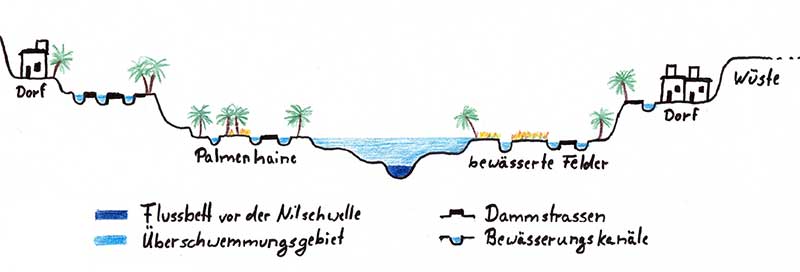 Dorf
Wüste
Dorf
Palmenhaine
bewässerte Felder
Flussbett vor der Nilschwelle
Überschwemmungsgebiet
Dammstrassen
Bewässerungskanäle